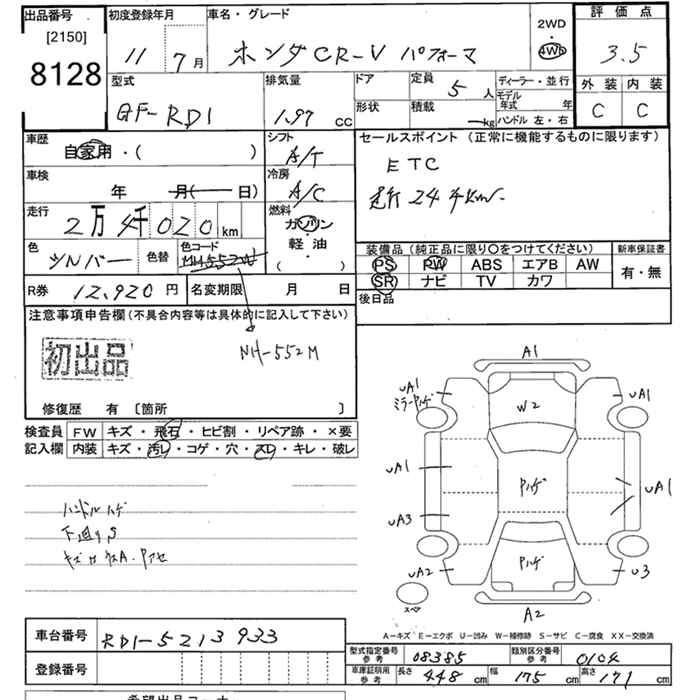 出品番号
[2150]
8128
初度登録年月
11 7月
車名・グレード
ホンダ CR-V パフォーマ
2WD
・
4WD
評価点
3.5
外装 内装
C C
型式
GF-RD1
排気量
1.97 CC
ドア
形状
定員 5 人
積載 kg
ディーラー・並行
モデル
年式 年
ハンドル 左・右
車歴
自家用・( )
シフト
A/T
セールスポイント (正常に機能するものに限ります)
ETC
走行 2.4千km
車検
年 月( 日)
冷房
A/C
走行
2万4千020km
燃料
ガソリン
軽油
( )
色
シルバー
色替
色コード
NH-552M
装備品(純正品に限り○をつけてください)
PS PW ABS エアB AW
SR ナビ TV カワ
新車保証書
有・無
R券 12,920円
名変期限 月 日
後日品
注意事項申告欄(不具合内容等は具体的に記入して下さい)
初出品
NH-552M
修復歴 有 〔箇所 〕
検査員 FW キズ・飛石・ヒビ割・リペア跡・×要
記入欄 内装 キズ・汚レ・コゲ・穴・スレ・キレ・破レ
ハンドルハゲ
下廻りS
A1
UA1
ミラーPハゲ
W2
UA1
UA1
Pハゲ
UA1
UA3
UA2
Pハゲ
U3
スペア
A2
A-キズ E-エクボ U-凹み W-補修跡 S-サビ C-腐食 XX-交換済
車台番号 RD1-5213933
登録番号
型式指定番号
参考
08385
類別区分番号
参考
車庫証明用
参考
長さ 448 cm 幅 175 cm 高さ 171 cm
希望出品コーナー